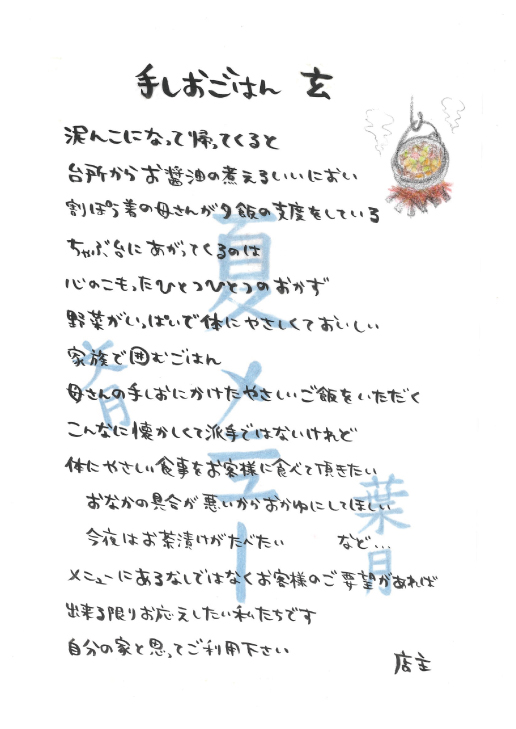 手しおごはん 玄
泥んこになって帰ってくると
台所からお醤油の煮えるいいにおい
割ぽう着の母さんが夕飯の支度をしている
ちゃぶ台にあがってくるのは
心のこもったひとつひとつのおかず
野菜がいっぱいで体にやさしくておいしい
家族で囲むごはん
母さんの手しおにかけたやさしいご飯をいただく
こんなに懐かしくて派手ではないけれど
体にやさしい食事をお客様に食べて頂きたい
おなかの具合が悪いからおかゆにしてほしい
今夜はお茶漬けがたべたい など...
メニューにあるなしではなくお客様のご要望があれば
出来る限りお応えしたい私たちです
自分の家と思ってご利用下さい
店主
夏メニュー
葉月